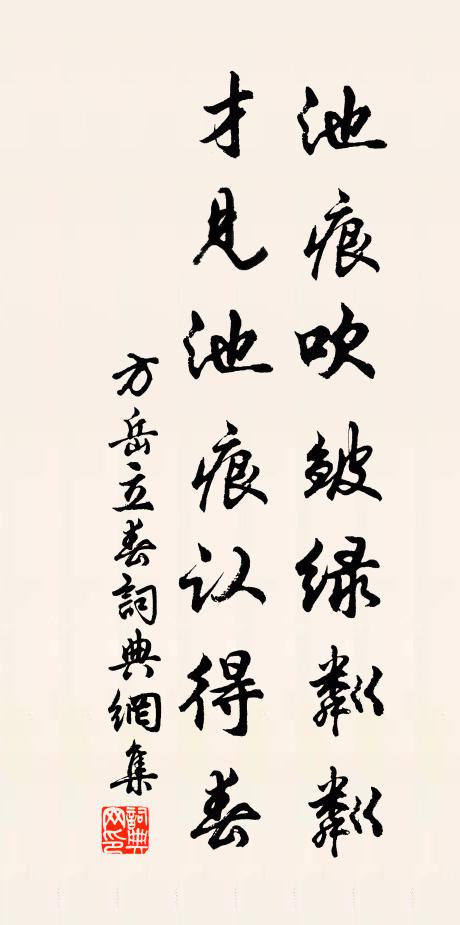 池痕吹皱绿粼粼
才见池痕认得春
方岳立春詞典網集
詞典
网印